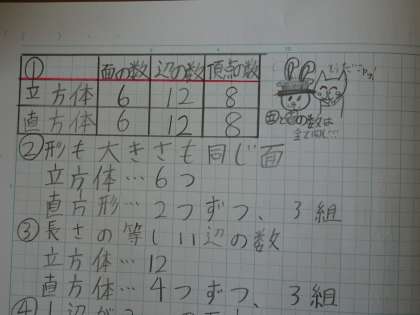 ①　面の数　辺の数　頂点の数
立方体　6　12　8
直方体　6　12　8
②形も大きさも同じ面
立方体…6つ
直方形…2つずつ、3組
③長さの等しい辺の数
立方体…12
直方体…4つずつ、3組
④1辺が